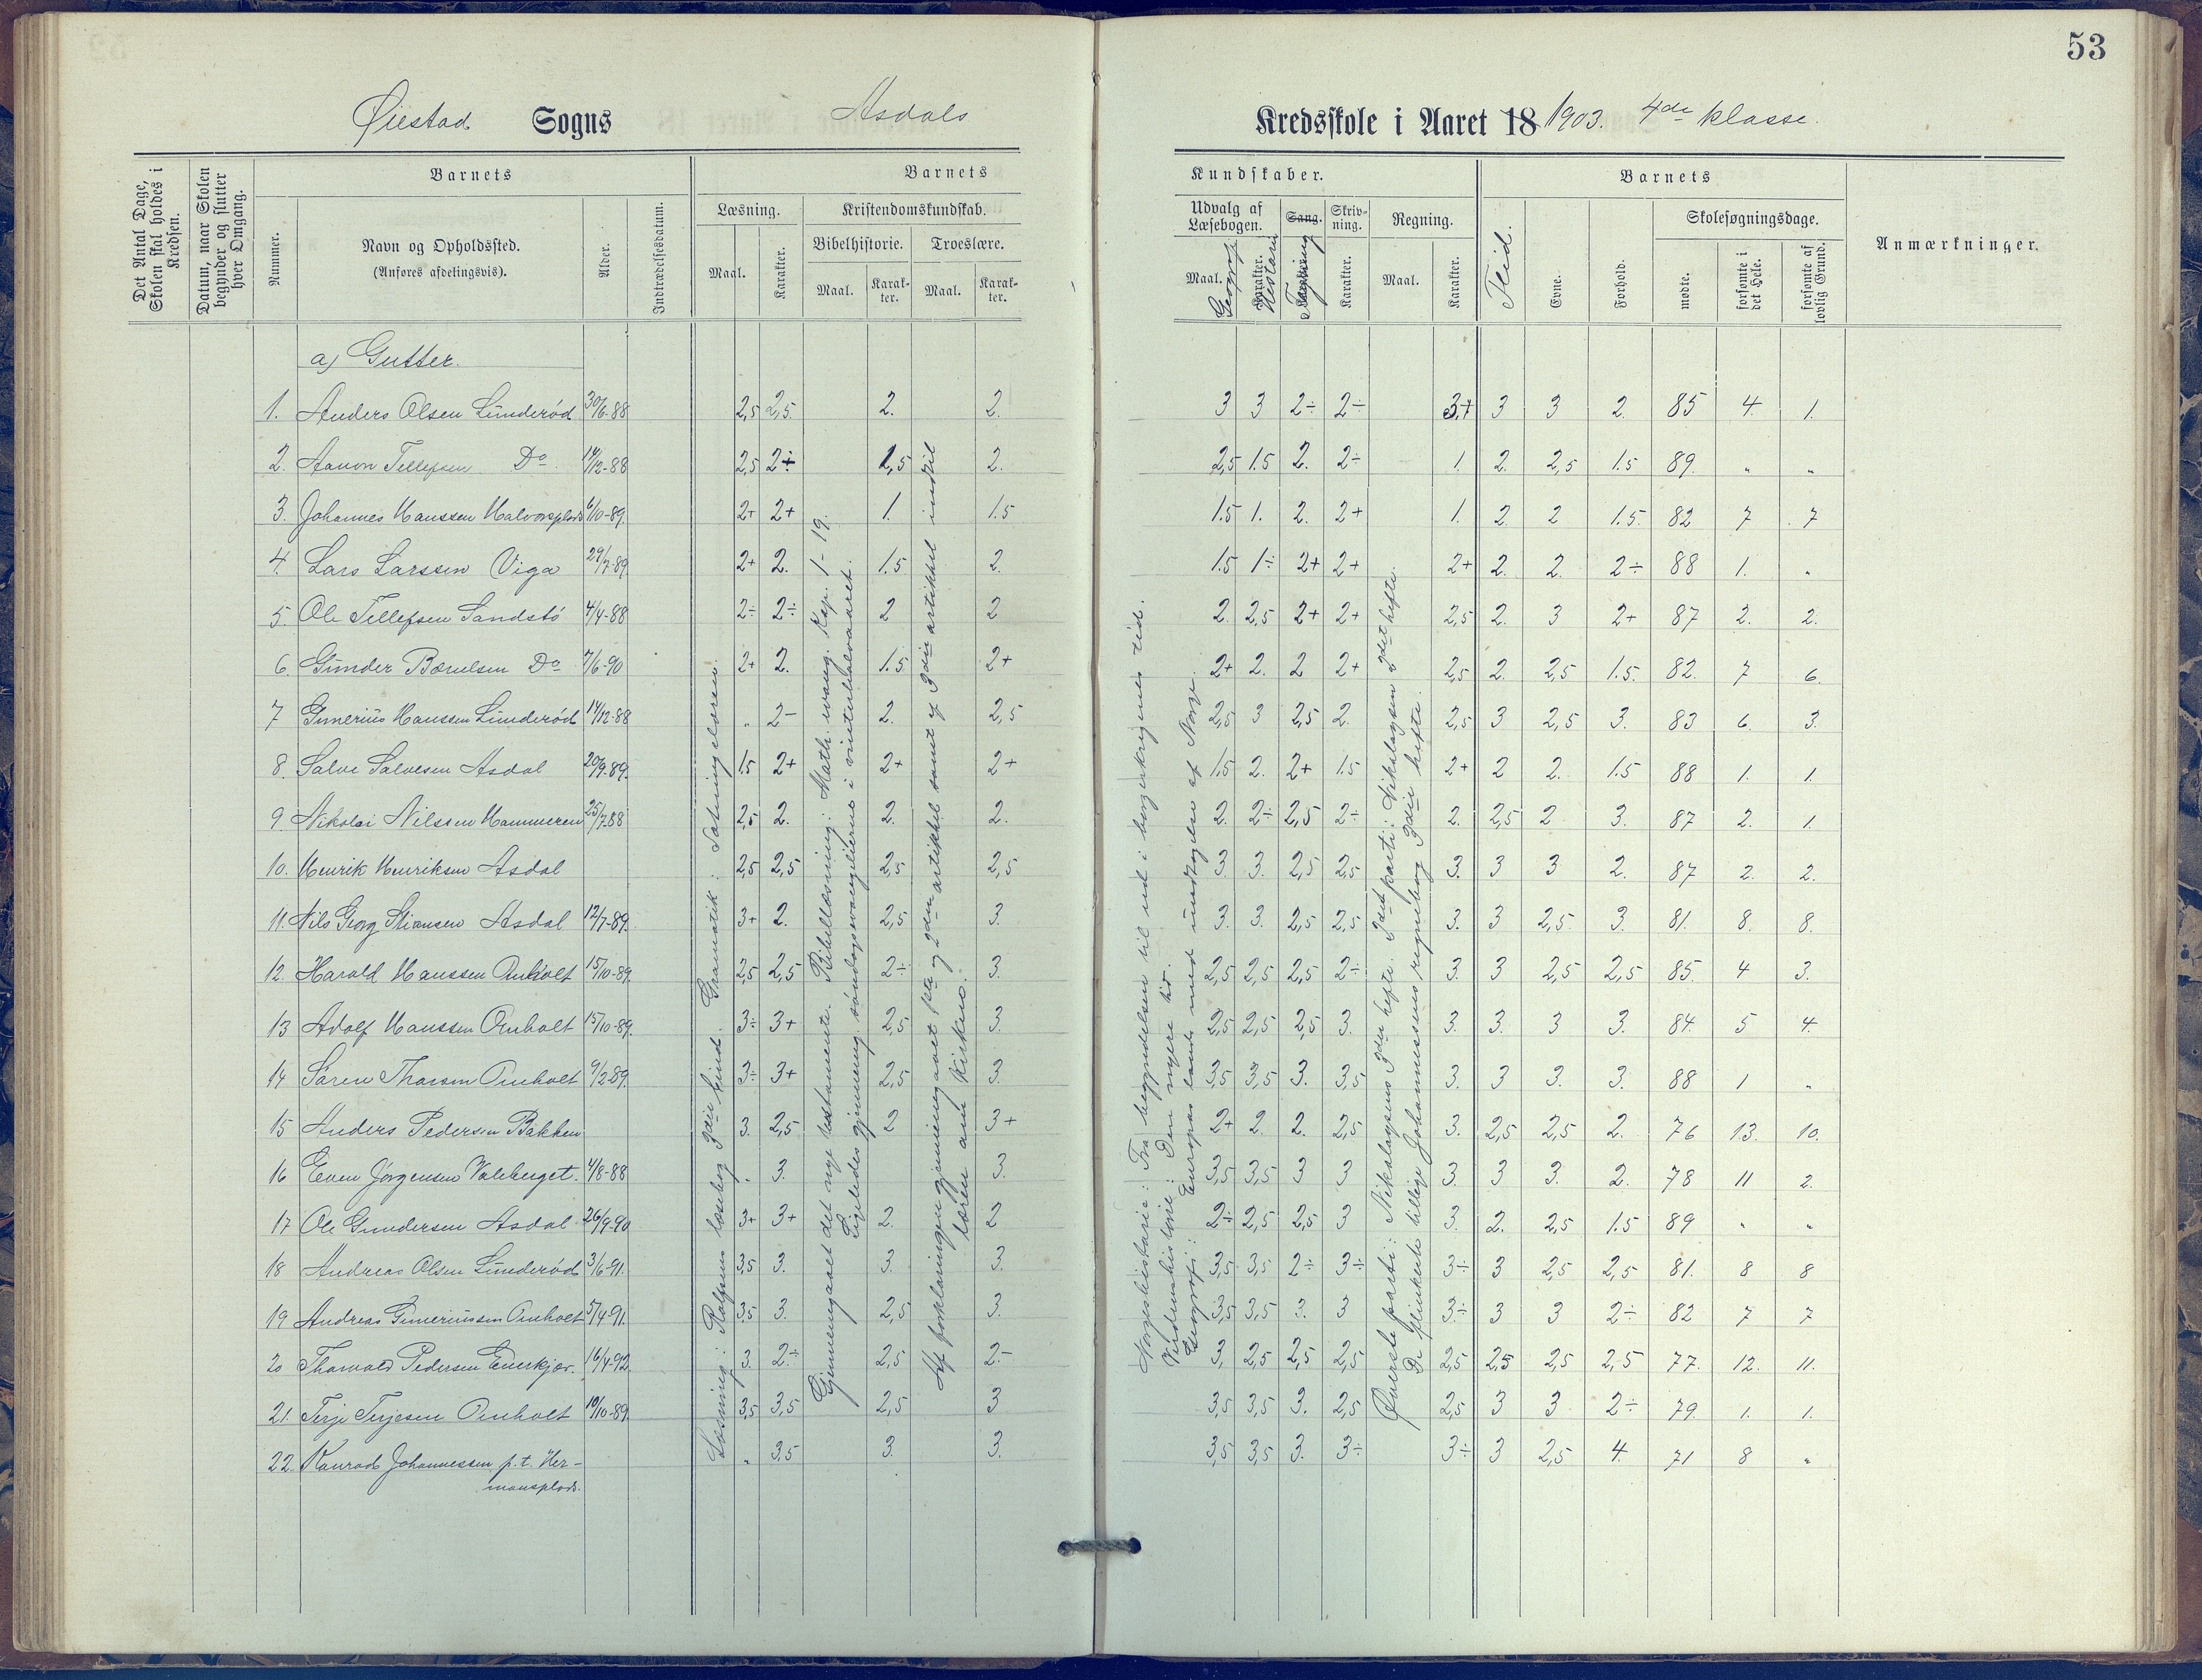 53
Øiestad Sogns Asdals Kredsskole i Aaret 18 1903. 4de klasse.
Det Antal Dage, Skolen skal holdes i Kredsen.
Datum, naar Skolen begynder og slutter hver Omgang.
Barnets
Nummer.
Navn og Opholdssted.
(Anføres afdelingsvis).
Alder.
Indtrædelsesdatum.
Barnets Kundskaber.
Læsning. Maal. Karakter.
Kristendomskundskab.
Bibelhistorie. Maal. Karakter.
Troeslære. Maal. Karakter.
Udvalg af Læsebogen. Maal. Geografi Karakter. Historie
Sang. Tegning
Skrivning. Karakter.
Regning. Maal. Karakter.
Barnets
Flid. Evne. Forhold.
Skolesøgningsdage.
mødte. forsømte i det Hele. forsømte af lovlig Grund.
Anmærkninger.
a) Gutter.
1. Anders Olsen Lunderød 30/6-88 2,5 2,5 2. 2. 3 3 2÷ 2÷ 3+ 3 3 2. 85 4. 1.
2. Aanon Tellefsen Do 14/12-88 2,5 2÷ 1,5 2. 2,5 1.5 2. 2÷ 1. 2. 2,5 1.5 89. " "
3. Johannes Hanssen Halvorsplads 6/10-89. 2+ 2+ 1. 1.5 1.5 1. 2. 2+ 1. 2. 2 1.5. 82 7 7
4. Lars Larssen Viga 29/7-89 2+ 2. 1.5 2. 1.5 1÷ 2+ 2+ 2+ 2. 2. 2÷ 88 1. "
5. Ole Tellefsen Sandstø 4/4-88 2÷ 2÷ 2 2 2. 2,5 2+ 2+ 2,5 2. 3 2+ 87 2. 2.
6. Gunder Bærulsen Do 7/6-90 2+ 2. 1.5. 2+ 2+ 2. 2 2+ 2,5 2. 2,5 1.5. 82. 7 6.
7 Gunerius Hanssen Lunderød 14/12-88 " 2- 2. 2,5 2,5 3 2,5 2. 2,5 3 2,5 3. 83 6. 3.
8. Salve Salvesen Asdal 20/9-89. 1.5 2+ 2+ 2+ 1.5 2. 2+ 1.5 2+ 2 2. 1.5 88 1. 1.
9. Nikolai Nilssen Hammeren 25/7-88 2,5 2. 2. 2. 2. 2÷ 2,5 2÷ 2. 2,5 2 3. 87 2. 1.
10. Henrik Henriksen Asdal 2,5 2,5 2,5 2,5 3. 3. 2,5 2,5. 3. 3 3 2. 87 2. 2.
11. Nils Georg Stiansen Asdal 12/7-89. 3+ 2. 2,5 3. 3. 3. 2,5 2,5. 3. 3 2,5. 3. 81. 8. 8.
12. Harald Hanssen Omholt 15/10-89. 2,5 2,5 2÷ 3. 2,5 2,5 2,5 2÷ 3. 3 2,5 2,5 85. 4 3.
13 Adolf Hanssen Omholt 15/10-89. 3÷ 3+ 2,5 3. 2,5 2,5 2,5 3. 3. 3. 3 3. 84. 5 4.
14 Søren Tharson Omholt 9/2-89. 3÷ 3+ 2,5 3. 3,5 3,5 3. 3,5 3. 3 3. 3. 88 1 "
15 Anders Pedersen Bakken 3. 2,5 2 3+ 2+ 2. 2. 2,5 3. 2,5 2,5 2. 76 13. 10.
16 Even Jørgensen Valeberget. 4/8-88 " 3. 3. 3,5 3,5 3 3 3. 3 3. 2. 78 11 2.
17 Ole Gundersen Asdal 26/9-90 3+ 3+ 2. 2 2÷ 2,5 2,5 3 3. 2. 2,5 1.5 89 " "
18 Andreas Olsen Lunderød 3/6-91. 3,5 3. 3. 3. 3,5 3,5 2÷ 3÷ 3÷ 3 2,5 2,5 81. 8 8
19 Andreas Guneriussen Omholt 5/4-91. 3,5 3. 2,5 3. 3,5 3,5 3. 3 3÷ 3 3 2÷ 82 7 7
20 Tharvald Pedersen Enerkjær. 16/4-92. 3. 2÷ 2,5 2- 3. 2,5 2,5 2,5. 2,5 2,5 2,5 2,5 77. 12. 11.
21. Terje Terjesen Omholt 10/10-89. 3,5 3,5 2,5 3 3,5 3,5 3. 2,5 2,5 3 3 2÷ 79. 1. 1.
22. Konrad Johannessen p.t. Her-
mansplads. " 3,5 3. 3. 3,5 3,5 3. 3÷ 3÷ 3 2,5 4. 71 8 "
Læsning: Rolfsens læsebog 3die bind. Gramatik: Sætningslæren.
Gjennemgaaet det nye testamente. Bibellæsning: Math. evang. Kap. 1-19.
Ligeledes gjennemg. søndagsevangelierne i vinterhalvaaret.
Af forklaringen gjennemgaaet 1ste og 2den artikkel samt af 3die artikkel indtil
læren om kirken.
Norgeshistorie: Fra begyndelsen til ud i borgerkrigenes tid.
Verdenshistorie: Den nyere tid.
Geografi: Europas lande med undtagelse af Norge.
Øverste parti: Nikolaysens 3die hefte. 2det parti: Nikolaysen 2det hefte.
De flinkeste tillige Johannessens regnebog 3die hefte.